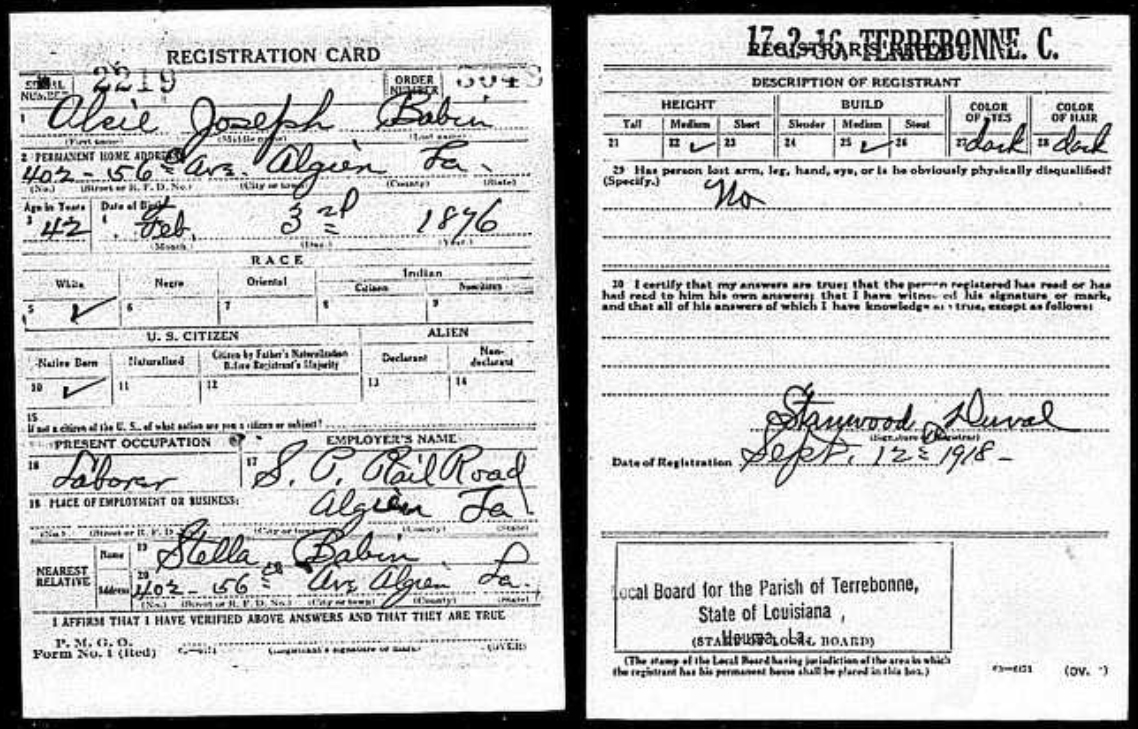 REGISTRATION CARD
SERIAL NUMBER 2219 ORDER NUMBER
1 Alcie Joseph Babin
(First name) (Middle name) (Last name)
2 PERMANENT HOME ADDRESS:
402 - 156 Ave. Algien La.
(No.) (Street or R. F. D. No.) (City or town) (County) (State)
Age in Years Date of Birth
3 42 4 Feb. 3rd 1876
(Month.) (Day.) (Year.)
RACE
White Negro Oriental Indian
Citizen Noncitizen
5 ✓ 6 7 8 9
U. S. CITIZEN ALIEN
Native Born Naturalized Citizen by Father's Naturalization Before Registrant's Majority Declarant Non-declarant
10 ✓ 11 12 13 14
15
If not a citizen of the U. S., of what nation are you a citizen or subject?
PRESENT OCCUPATION EMPLOYER'S NAME
16 Laborer 17 S. P. Rail Road
18 PLACE OF EMPLOYMENT OR BUSINESS:
Algien La.
(No.) (Street or R. F. D. No.) (City or town) (County) (State)
NEAREST RELATIVE
Name 19 Stella Babin
Address 20 402 - 156 Ave Algien La.
(No.) (Street or R. F. D. No.) (City or town) (County) (State)
I AFFIRM THAT I HAVE VERIFIED ABOVE ANSWERS AND THAT THEY ARE TRUE
P. M. G. O.
Form No. 1 (Red) (Registrant's signature or mark) (OVER)
17-2-16, TERREBONNE. C.
REGISTRAR'S REPORT
DESCRIPTION OF REGISTRANT
HEIGHT BUILD COLOR OF EYES COLOR OF HAIR
Tall Medium Short Slender Medium Stout
21 22 ✓ 23 24 25 ✓ 26 27 dark 28 dark
29 Has person lost arm, leg, hand, eye, or is he obviously physically disqualified?
(Specify.) No
30 I certify that my answers are true; that the person registered has read or has
had read to him his own answers; that I have witnessed his signature or mark,
and that all of his answers of which I have knowledge are true, except as follows:
Stanwood Duval
(Signature of Registrar)
Date of Registration Sept. 12 1918 -
Local Board for the Parish of Terrebonne,
State of Louisiana,
Houma, La.
(STAMP OF LOCAL BOARD)
(The stamp of the Local Board having jurisdiction of the area in which
the registrant has his permanent home shall be placed in this box.)
(OV. )